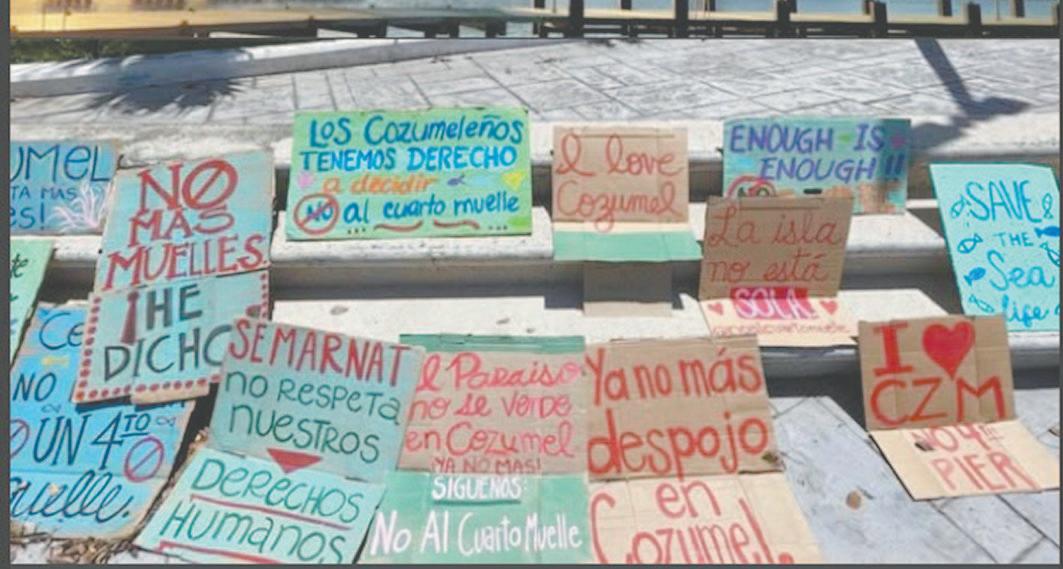 UMEL
TA MAS
es!
NO
MAS
MUELLES.
¡HE
DICHO
LOS Cozumeleños
TENEMOS DERECHO
a decidir
NO al cuarto muelle
I love
Cozumel
ENOUGH IS
ENOUGH!!
NO
La isla
no está
SOLA!
SAVE
THE
Sea
life
te
Ce
NO
UN 4TO
uelle.
SEMARNAT
no RESPETA
nuestros
DERECHOS
Humanos
el Paraiso
no se vende
en Cozumel
YA NO MAS!
SIGUENOS:
No Al Cuarto Muelle
Ya no más
despojo
en
Cozumel.
I ❤ CZM
NO 4TH
PIER